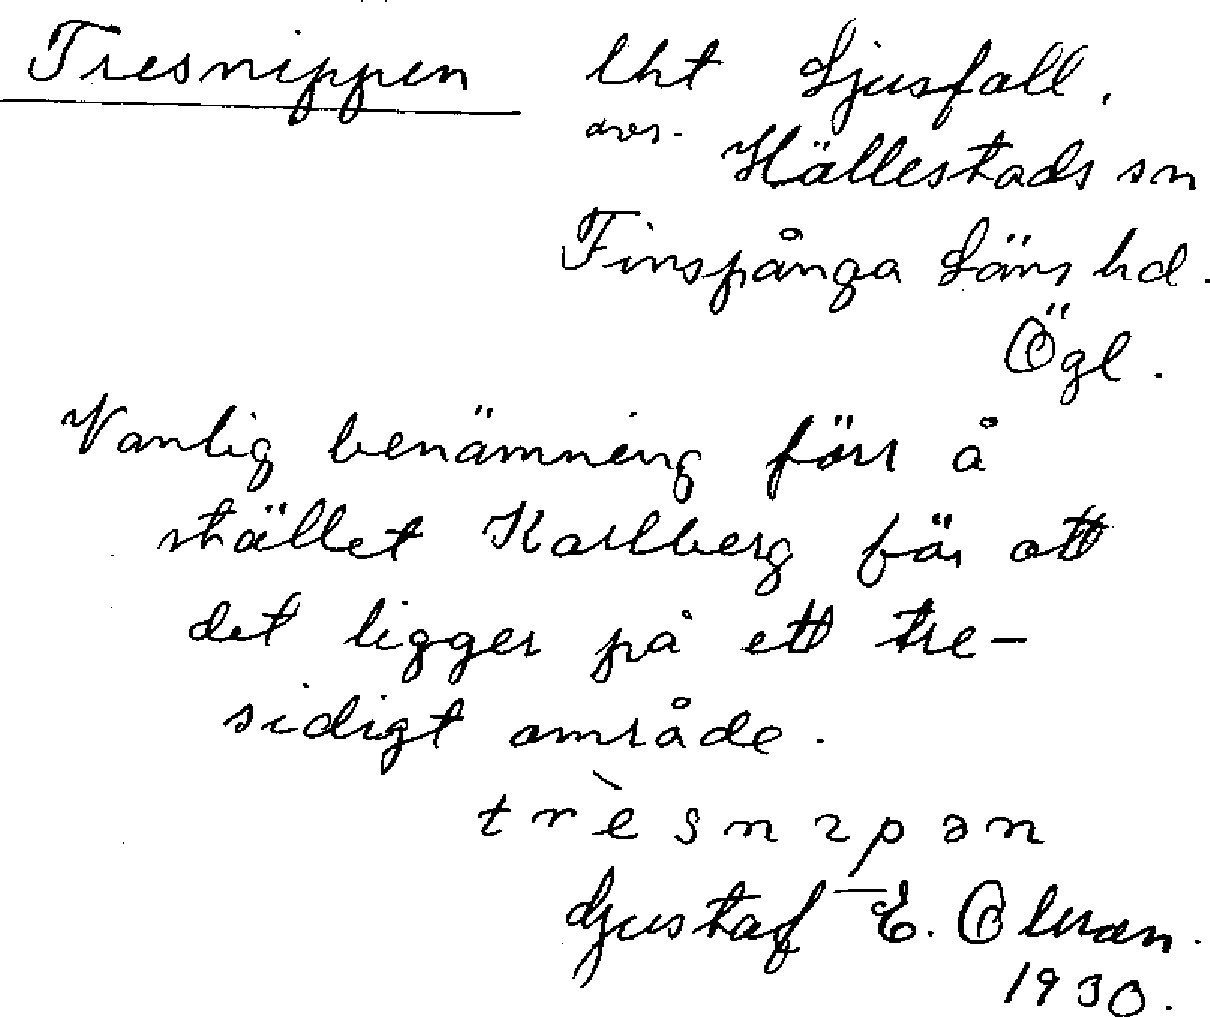 Tresnippen lht Ljusfall,
avs.
Hällestads sn
Finspånga Läns hd.
Ögl.
Vanlig benämning förr å
stället Karlberg för att
det ligger på ett tre-
sidigt område.
Gustaf E.
1930.